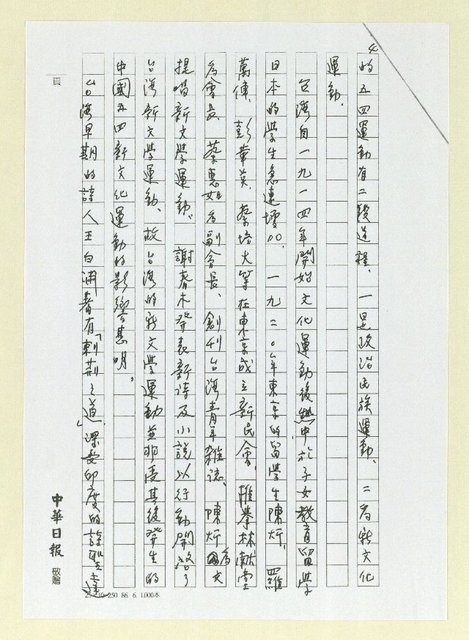 4
的五四運動有二段過程、一是政治民族運動、二為新文化
運動。
台灣自一九一四年開始文化運動後熱中於子女教育留學
日本的學生急速增加。一九二〇年東京的留學生陳炘、羅
萬俥、彭華英、蔡培火等在東京成立新民會、推舉林獻堂
為會長、蔡惠如為副會長、創刊台灣青年雜誌。陳炘為文
提唱新文學運動。謝春木發表新詩及小說以行動開啓了
台灣新文學運動、故台灣的新文學運動並非受其後發生的
中國五四新文化運動的影響甚明。
台灣早期的詩人王白淵著有「荊棘之道」深受印度的詩聖達
頁
中華日報 敬贈
25×10=250 86. 6. 1,000本